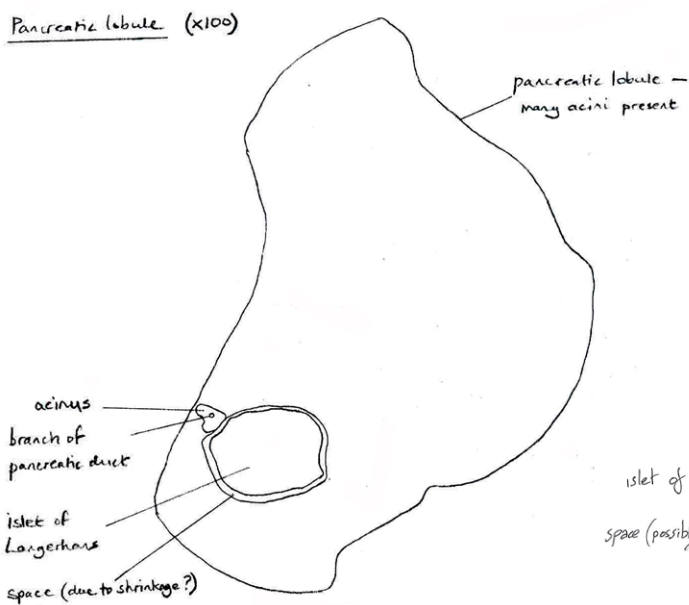 Pancreatic lobule (x100)
pancreatic lobule -
many acini present
acinus
branch of
pancreatic duct
islet of
Langerhans
space (due to shrinkage?)
islet of
space (possib